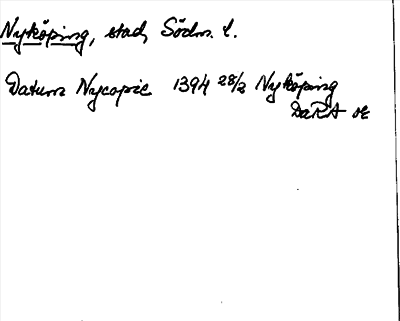 Nyköping, stad, Södm. l.
Datum Nycopie 1394 28/2 Nyköping
DaRA or